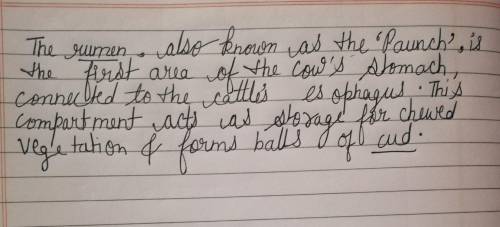 The rumen, also known as the 'Paunch', is
the first area of the cow's stomach,
connected to the cattle's esophagus. This
compartment acts as storage for chewed
vegetation & forms balls of cud.